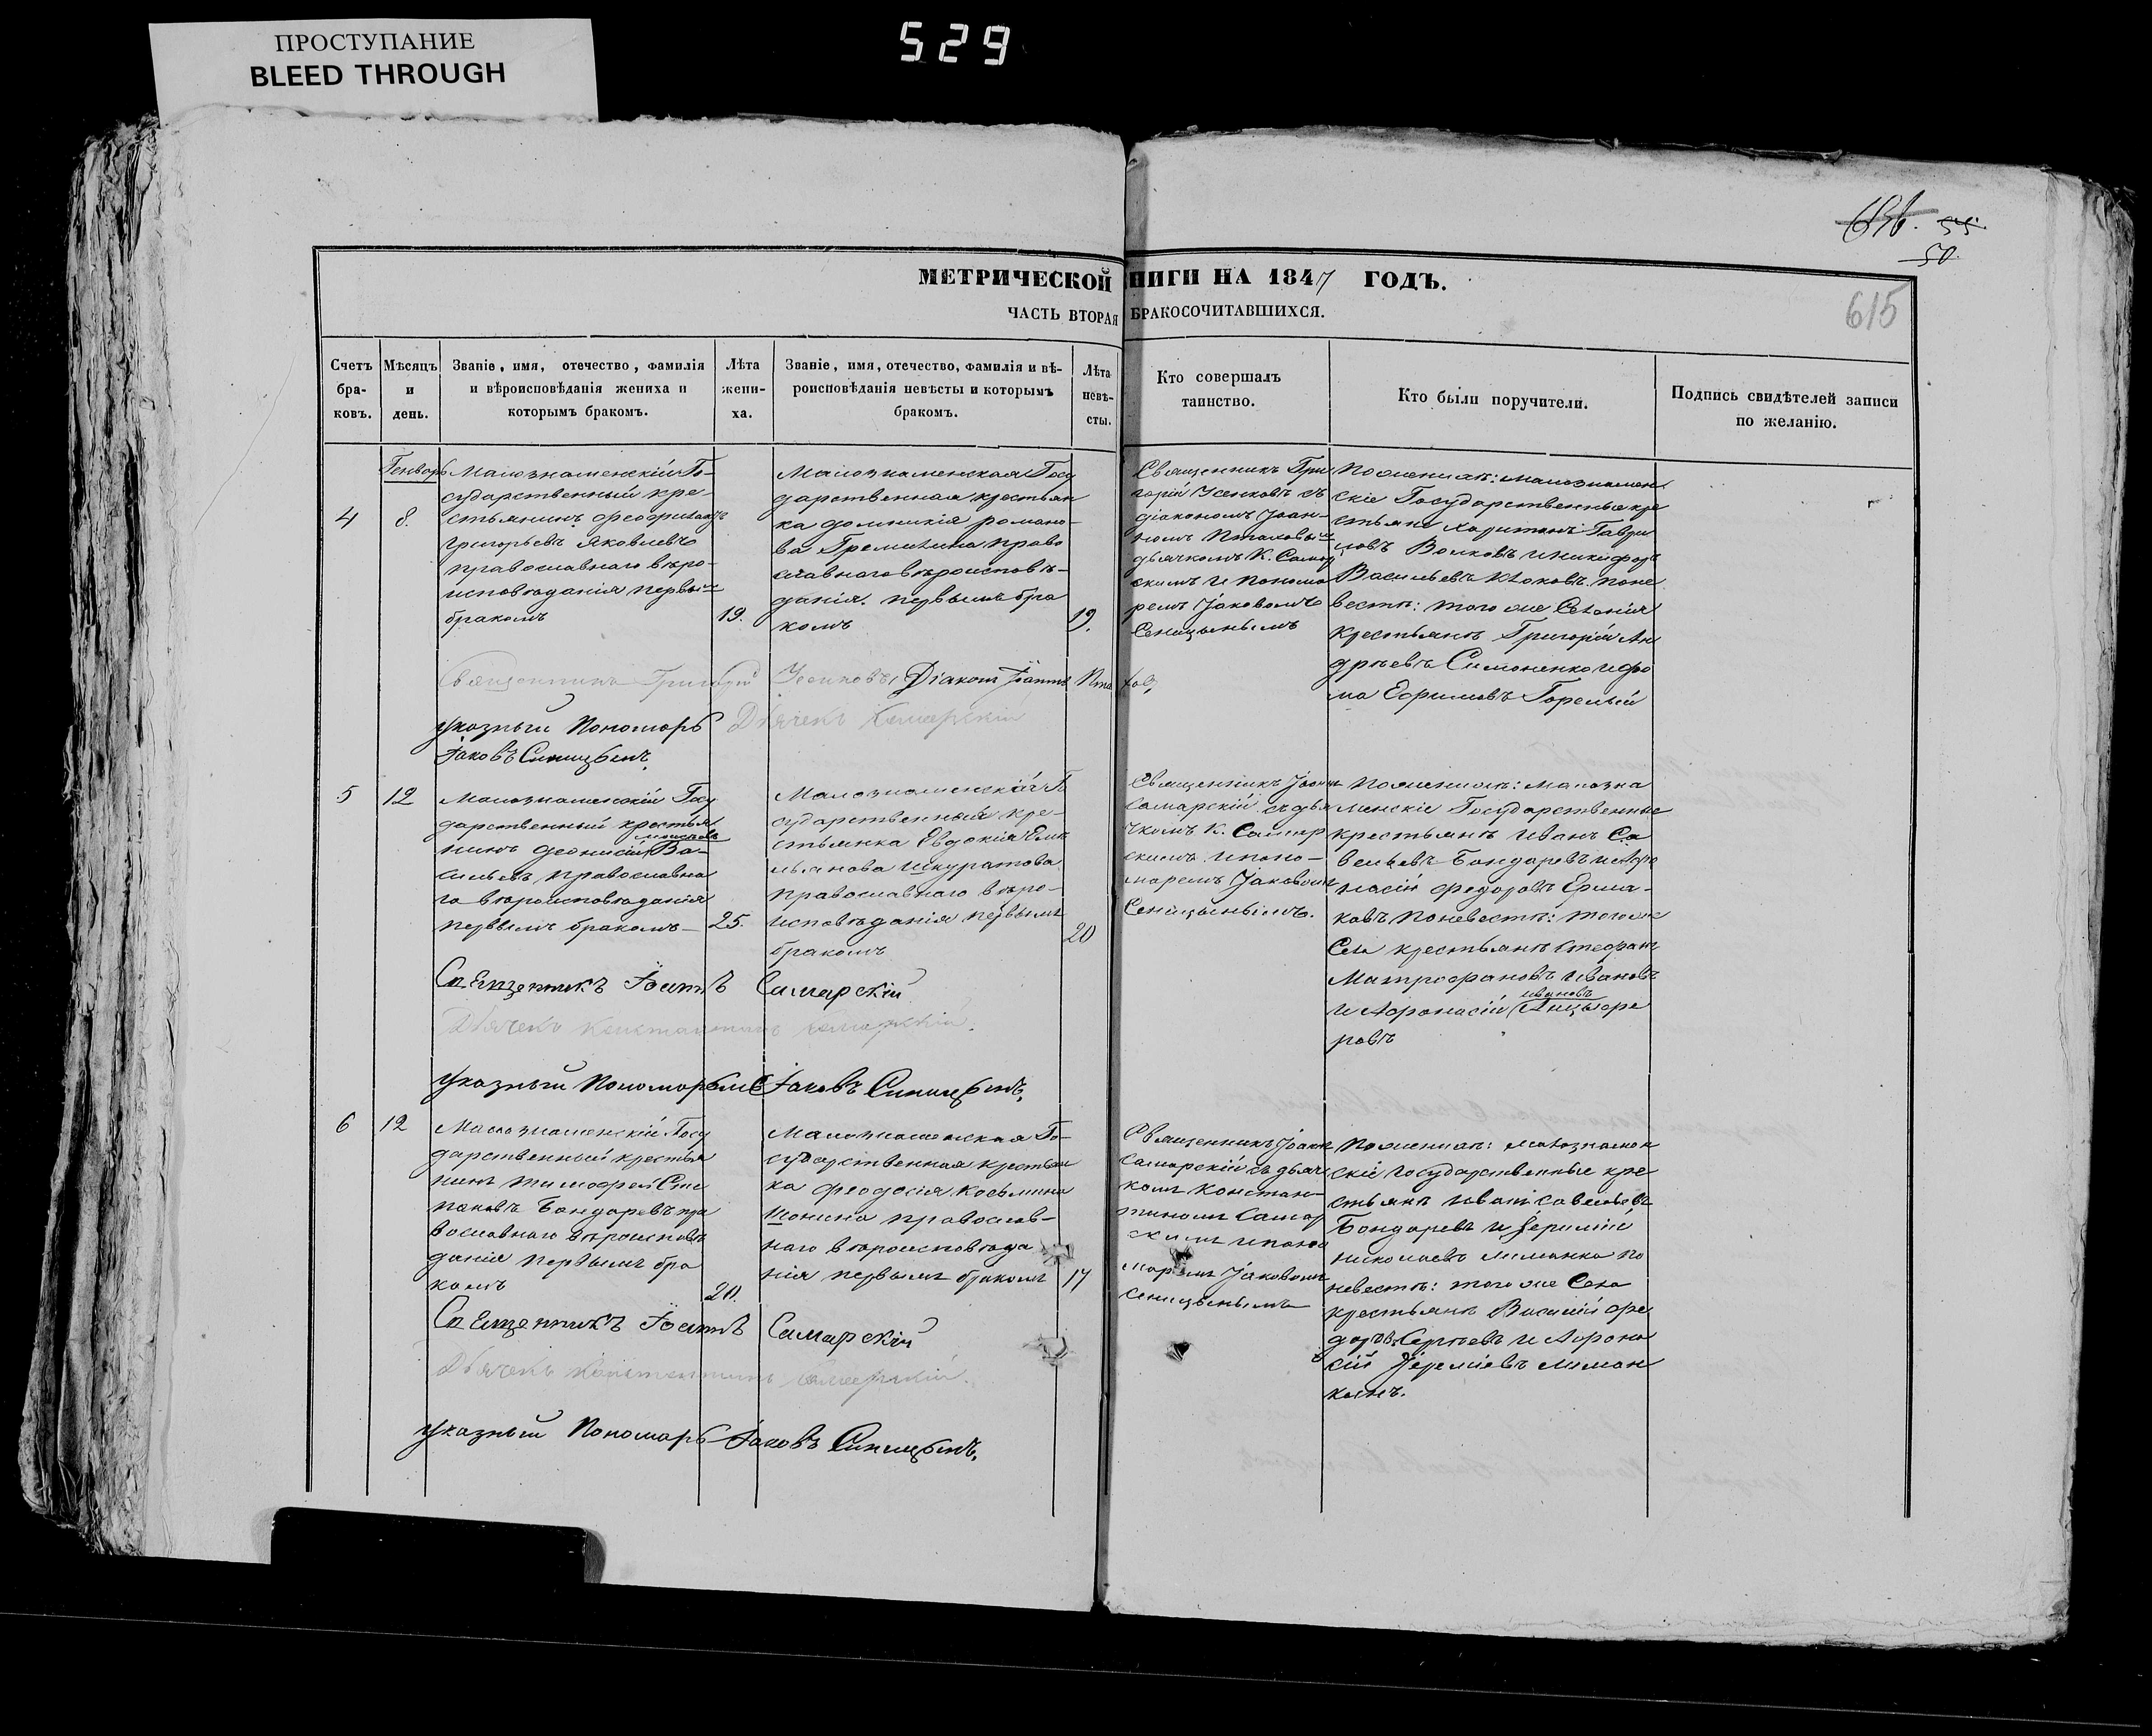 ПРОСТУПАНИЕ
BLEED THROUGH
529
50.
615
МЕТРИЧЕСКОЙ НИГИ НА 1847 ГОДЪ.
ЧАСТЬ ВТОРАЯ БРАКОСОЧИТАВШИХСЯ.
Счетъ бра-ковъ.
Мѣсяцъ и день.
Званіе, имя, отечество, фамилія
и вѣроисповѣданія жениха и
которымъ бракомъ.
Лѣта жени-ха.
Званіе, имя, отечество, фамилія и вѣ-
роисповѣданія невѣсты и которымъ
бракомъ.
Лѣта невѣ-сты.
Кто совершалъ
таинство.
Кто были поручители.
Подпись свидѣтелей записи
по желанію.
Генварь
4
8.
Малознаменскій Го-
сударственный кре-
стьянинъ
Григорьевъ Яковлевъ
православнаго вѣро-
исповѣданія первымъ
бракомъ
19.
Малознаменская Госу
дарственная крестьян
ка Домникія Романо-
ва Гремыкина право
славнаго вѣроисповѣ-
данія. первымъ бра
комъ
19.
Священникъ Гри
горій Усенковъ съ
діакономъ Іоан-
номъ
дьячкомъ К. Самар
скимъ и понома
ремъ Іаковомъ
Сеницынымъ
По женихѣ: малознамен
скіе Государственные кре
стьяне Харитонъ Гаври
ловъ Волковъ и Никифоръ
Васильевъ Клоковъ. по не
вестѣ: того же Селенія
крестьяне Григорій Ан
дрѣевъ Симоненко и Фо
ма Ефимовъ Горелый
Священникъ Григорій Усенковъ, Діаконъ Іоаннъ
Указный Пономарь Дьячекъ Самарскій
Іаковъ Синицынъ.
5
12
Малознаменскій Госу
дарственный крестья
нинъ Деонисій Ва-
сильевъ православна
го вѣроисповѣданія
первымъ бракомъ
25.
Малознаменскій Го
сударственная кре-
стьянка Евдокія Еме
льянова Шкуратова
православнаго вѣро-
исповѣданія первымъ
бракомъ
20
Священникъ Іоаннъ
Самарскій съ дья
чкомъ К. Самар
скимъ и поно-
маремъ Іаковомъ
Сеницынымъ.
По женихѣ: малозна
менскіе Государственные
крестьяне Иванъ Са
вельевъ Бондаревъ и Афа
насій Федоровъ Ерма-
ковъ по невестѣ: того же
Села крестьяне Стефанъ
Митрофановъ Ивановъ
ивановъ
и Афанасій Анцыфе
ровъ
Священникъ Іоаннъ Самарскій
Дьячекъ Константинъ Самарскій.
Указный Пономарь Іаковъ Синицынъ.
6
12
Малознаменскій Госу
дарственный крестья
нинъ Тимофей Сте
пановъ Бондаревъ пра
вославнаго вѣроисповѣ
данія первымъ бра
комъ
20.
Малознаменская Го-
сударственная крестьян
ка Феодосія Косьмина
Шонина православ-
наго вѣроисповѣда
нія первымъ бракомъ
17
Священникъ Іоаннъ
Самарскій съ дьяч
комъ Констан-
тиномъ Самар
скимъ и поно
маремъ Іаковомъ
Сеницынымъ
По женихѣ: малознамен
скіе Государственные кре
стьяне Иванъ Савельевъ
Бондаревъ и Іеремій
Николаевъ по
невестѣ: того же Села
крестьяне Василій Фе
доровъ Сергѣевъ и Афана
сій Іереміевъ Лиман
кинъ.
Священникъ Іоаннъ Самарскій
Дьячекъ Константинъ Самарскій.
Указный Пономарь Іаковъ Синицынъ.